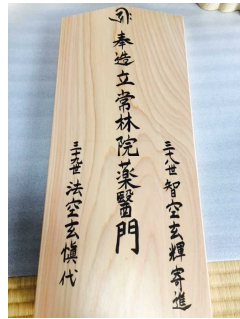 奉造立常林院薬醫門
三十八世智空玄輝寄進
三十九世法空玄愼代